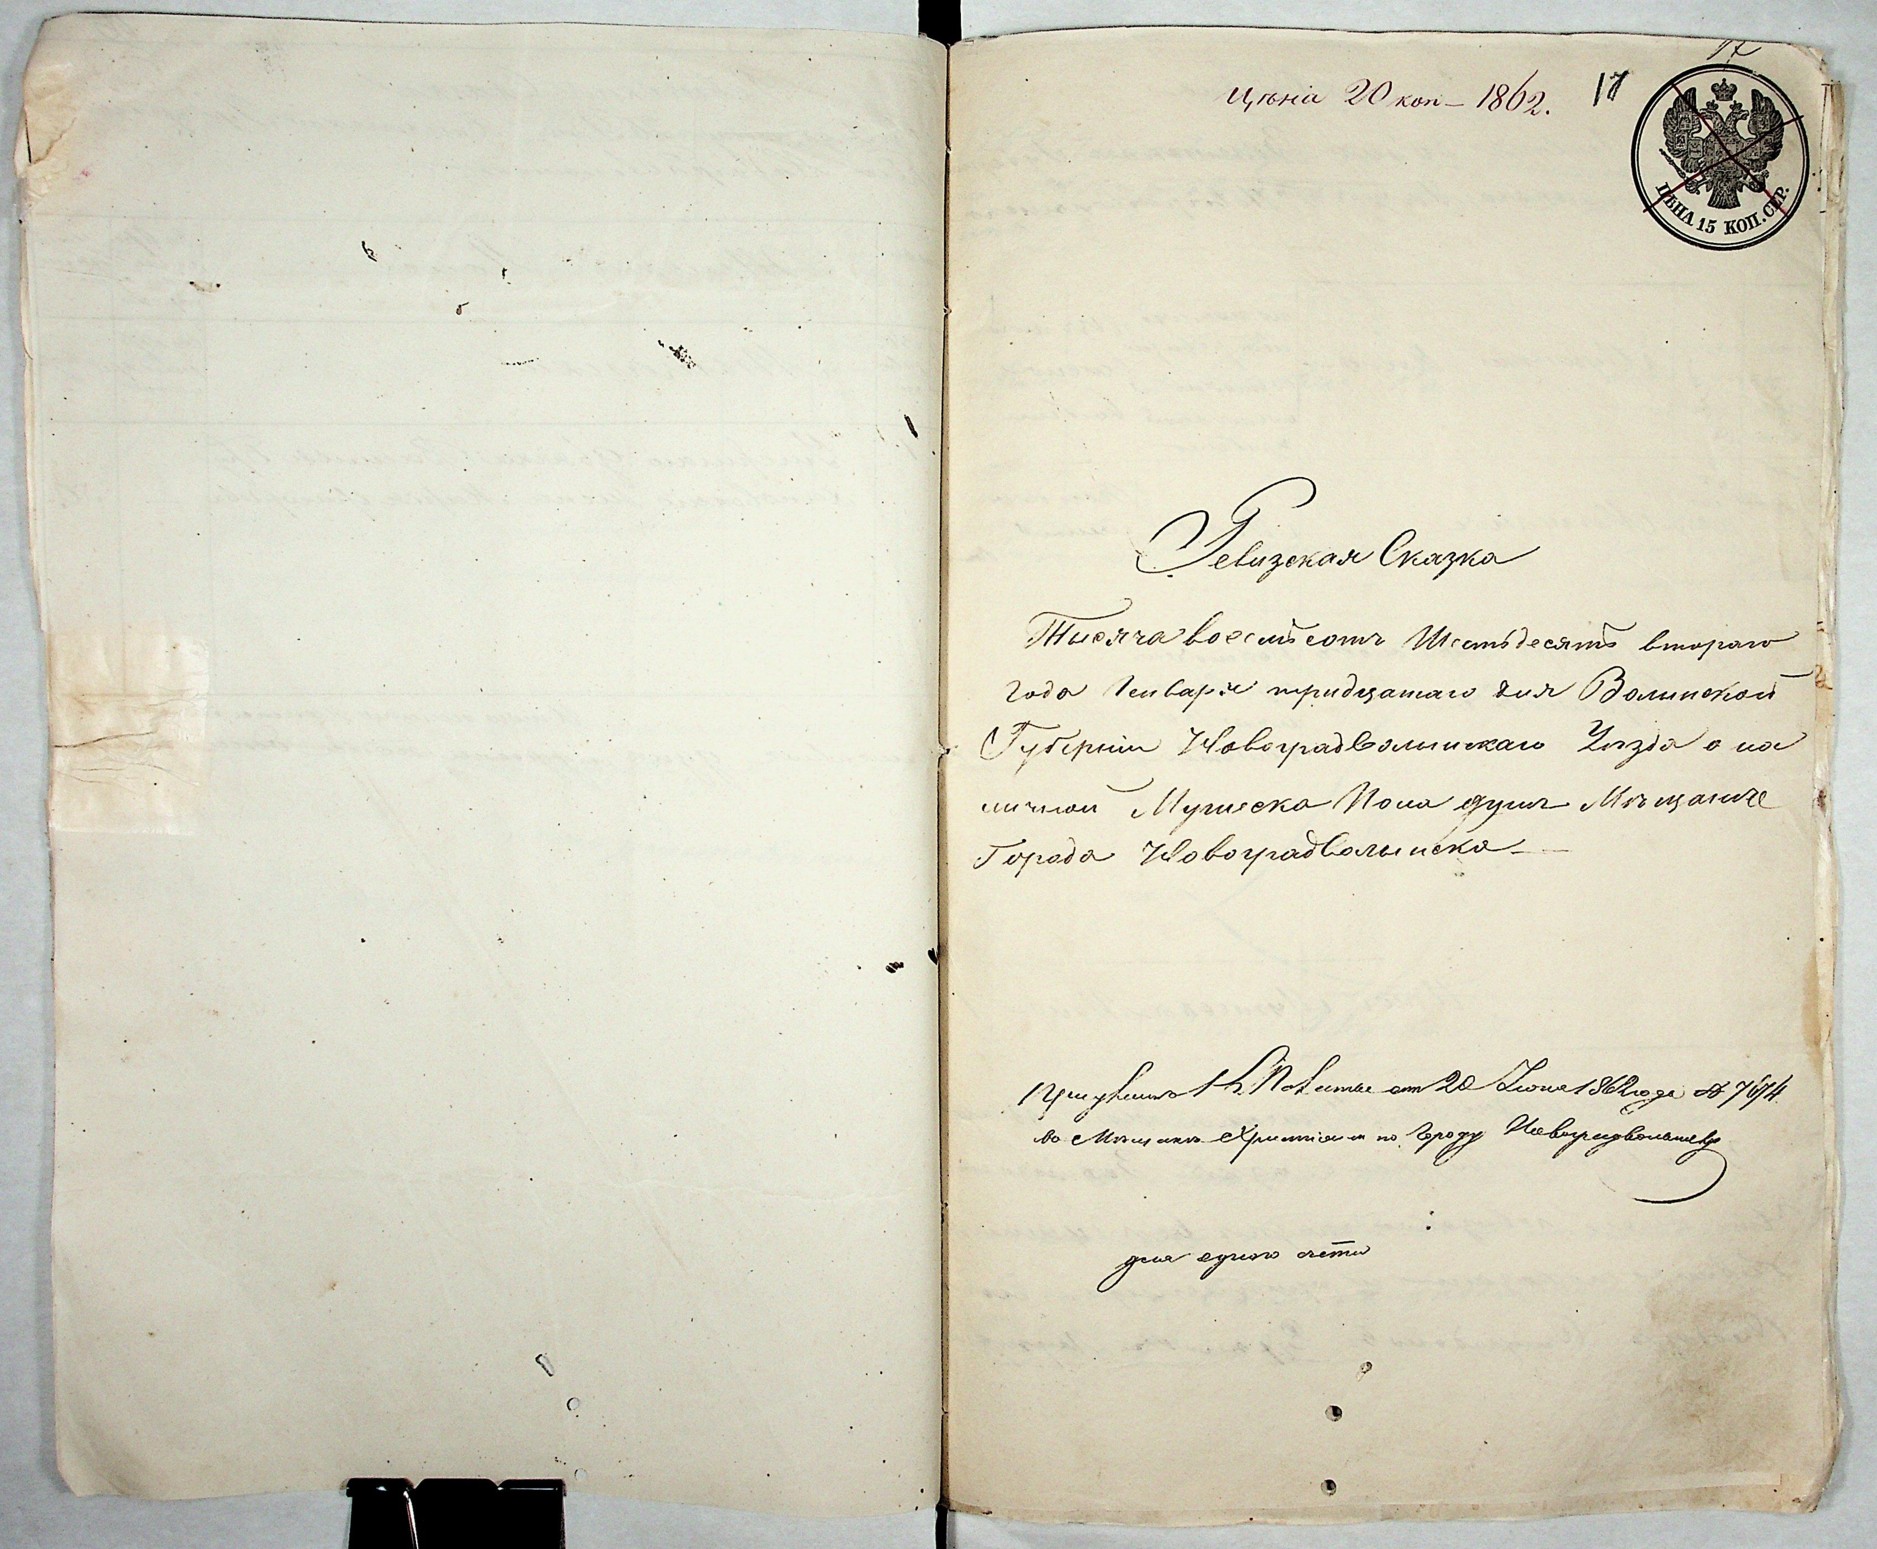 17
цѣна 20 коп – 1862. 17
ЦѢНА 15 КОП. СЕР.
Ревизская Сказка
Тысяча восемьсотъ Шестьдесятъ втораго
года Генваря тридцатаго дня Волынской
Губерніи Новоградволынскаго Уѣзда о на
личной Мужеска Пола душъ Мѣщанъ
Города Новоградволынска
от 20 Іюня 1862 года № 7674
въ Мѣщане Христіане по Городу Новоградволынску
для одного